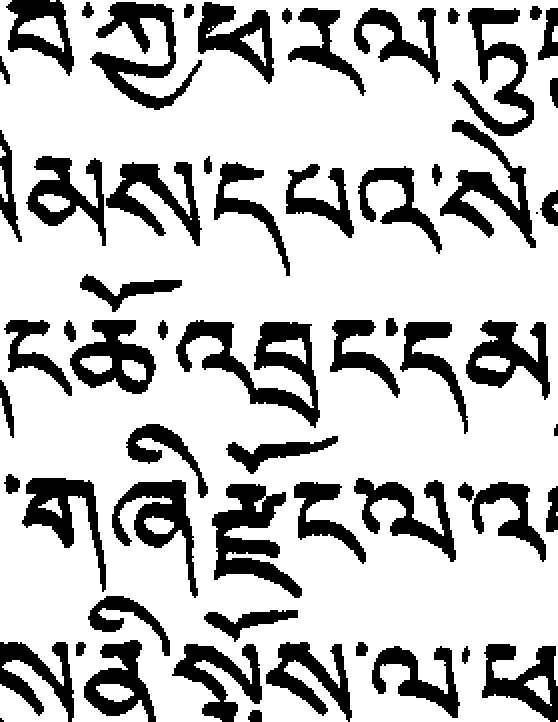 བ་ཀྱ་ཕ་རལ་ཏུ
མས་དཔའ་སེ
ང་ཆོ་འབྲང་དམ
་གཞིརྫོངལ་འ
ས་ནི་སྤོས་ལ་ཕ